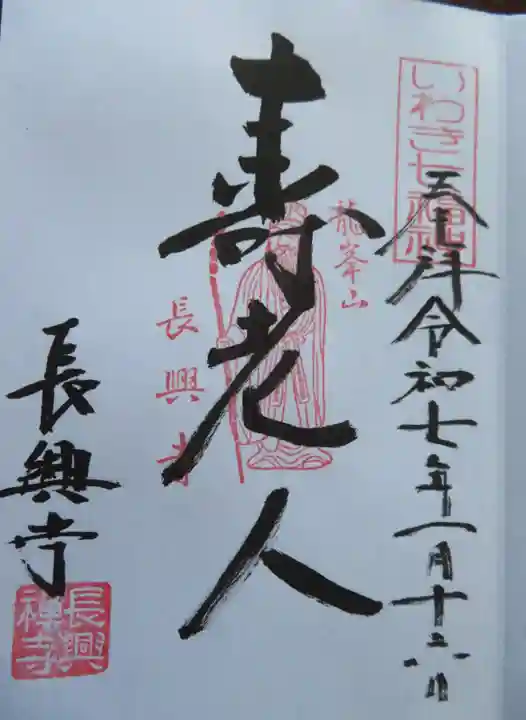 いわき七福神
奉拝 令和七年一月十六日
龍峯山
寿老人
長興寺
長興寺
長興
禅寺